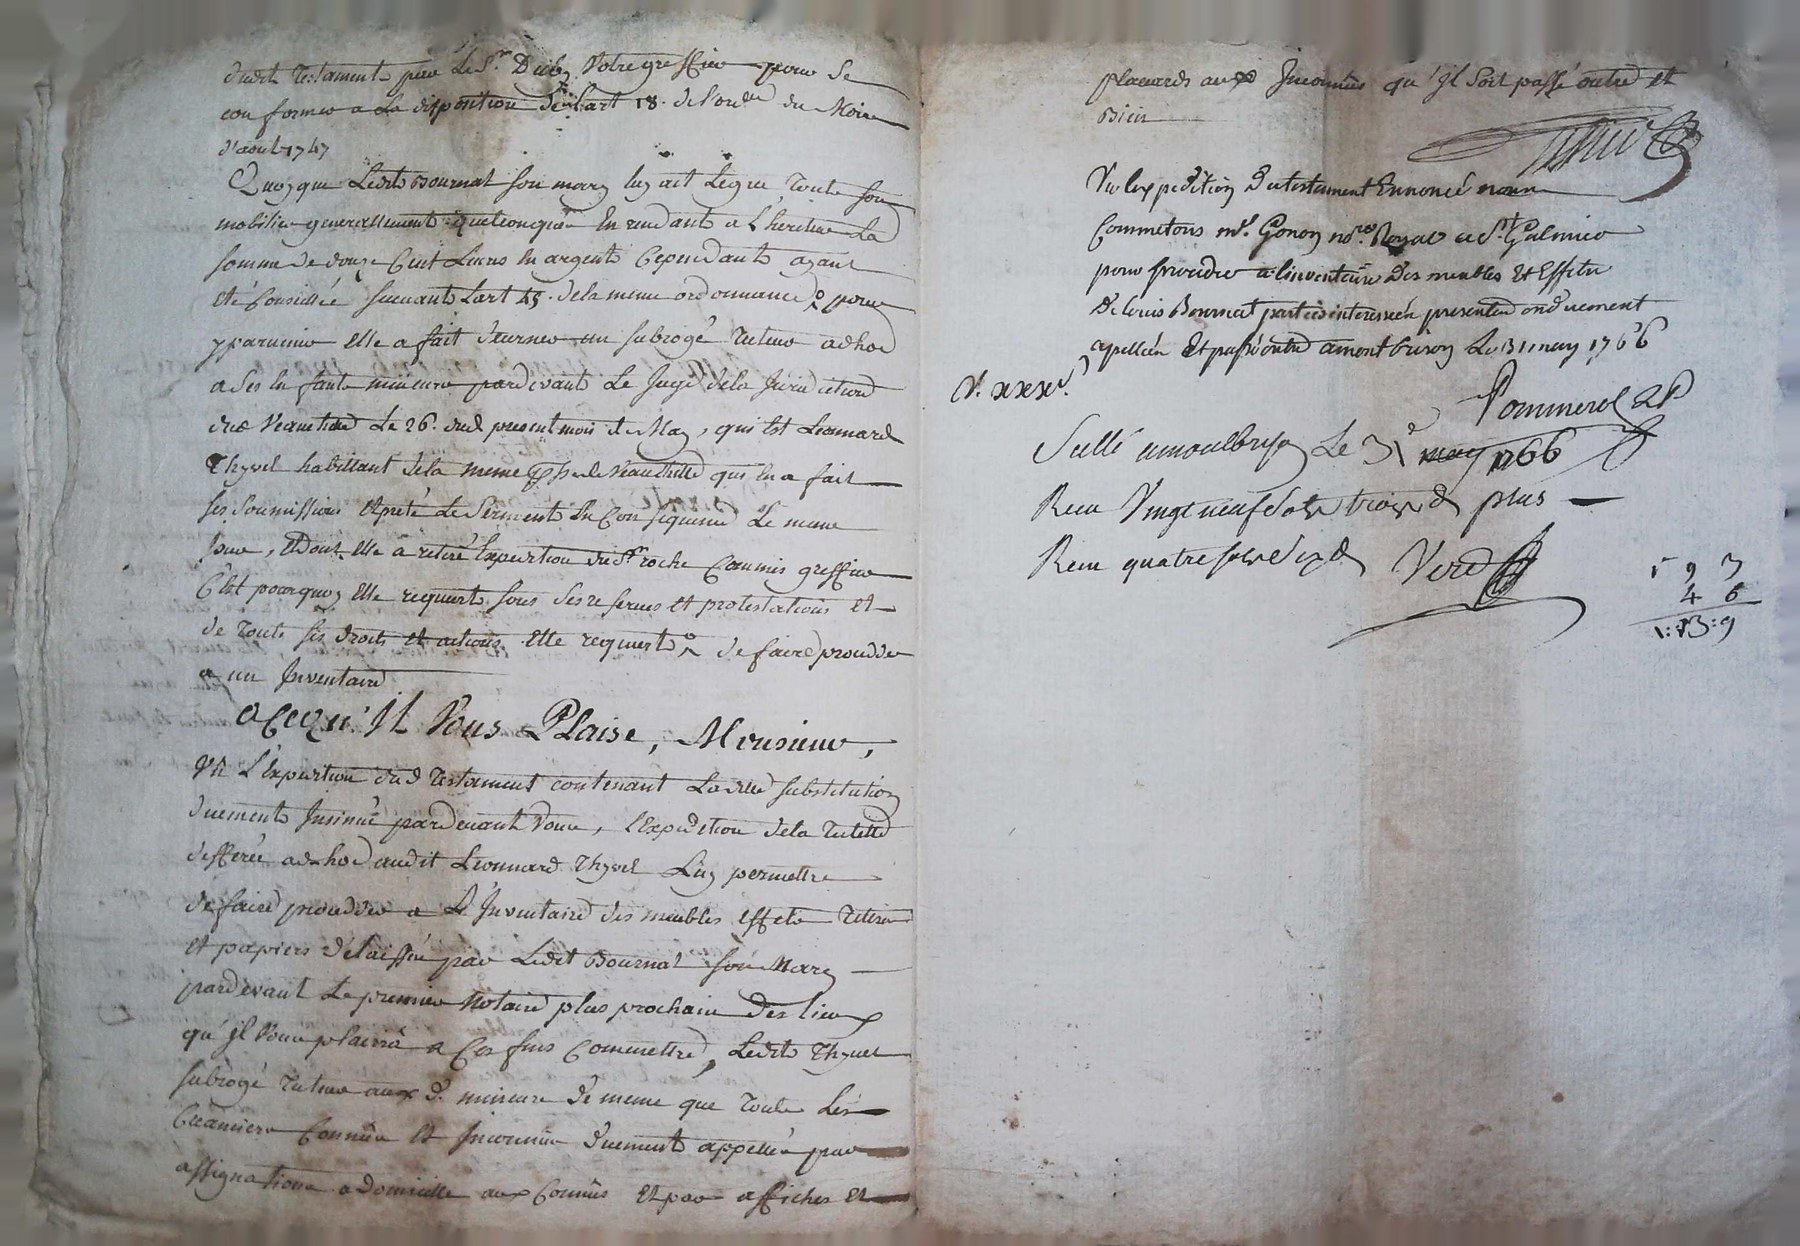 dudit Testament par Le Sr. Duby Votre greffier pour se
conformer a La disposition de l'art 18. de l'ordce du Mois
d'aout 1747
Quoyque Ledit Bournat son mary luy ait Legué Toute son
mobilier generallement quelconque En rendant a l'heritier La
somme de douze Cent Livres En argent Cependant ayant
eté Conseillée suivant L'art 45. de la meme ordonnance, pour
y parvenir Elle a fait decerner un subrogé Tuteur adhoc
a ses Enfants mineurs pardevant Le Juge de la Juridiction
de Veauchette Le 26. dud present mois de May, qui Est Leonnard
Thyvel habittant de la meme psse de Veauchette qui En a fait
ses soumissions Et preté Le Serment En Consequence Le meme
Jour, Et dont Elle a retiré Expedition du Sr roche Commis greffier
C'est pourquoy Elle requiert sous ses reserves et protestations Et
de Touts ses droits et actions Elle requiert de faire proceder
a un Inventaire
a Cequ'Il Vous Plaise, Monsieur,
Vû L'Expedition dud Testament contenant Ladite substitution
duement Insinué pardevant Vous, l'Expedition de la Tutelle
defferée ad hoc audit Leonnard Thyvel Luy permettre
de faire proceder a L'Inventaire des meubles effets Titres
et papiers délaissés par Ledit Bournat son Mary
pardevant Le premier Notaire plus prochain des lieux
qu'Il Vous plairra a Ces fins Commettre, Ledit Thyvel
subrogé Tuteur aux d. mineurs de meme que Touts Les
Creanciers Connus Et Inconnus duement appellés par
assignations a domicille aux Connus Et par affiches Et
placards aux Inconnus qu'Il soit passé outre et
Bien
Vu lexpedition du testament Ennoncé nous
Commetons me. Gonon nore. Royal a St. Galmier
pour proceder a linventaire des meubles Et Effets
de Louis Bournat parties interessées presentes ou duement
apellées Et passé outre a montbrison Le 31 may 1766
V. xxx s.
Pommerol
Scellé a montbrison Le 31 may 1766
Recu Vingt neuf sols trois d plus
Recu quatre sols six d Verd
1 9 3
4 6
1:13:9